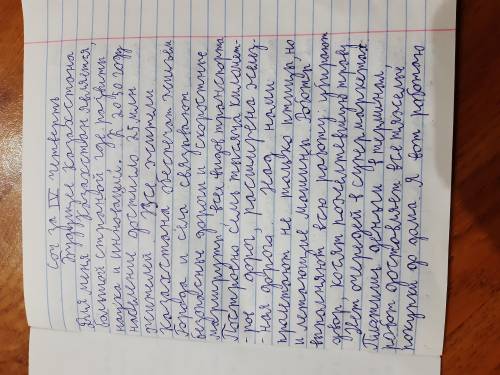 Соч за IV четверть
Будущее Казахстана
Для меня Казахстан является,
богатой страной где развиты
наука и инновации. К 2050 году
население достигло 25 млн
жителей. Все жители
Казахстана обеспечены жильём
Города и сёла связывают
безопасные дороги и скоростные
маршруты всех видов транспорта
Построено семь тысяч километ-
-ров дорог, расширена желез-
-ная дорога. Над нами
пролетают не только птицы, но
и летающие машины. Роботы
выполняют всю работу: убирают
двор, косят пожелтевшую траву.
Нет очередей в супермаркетах.
Платишь деньги в терминал и
робот доставляет все тяжелые
покупки до дома. А вот работаю